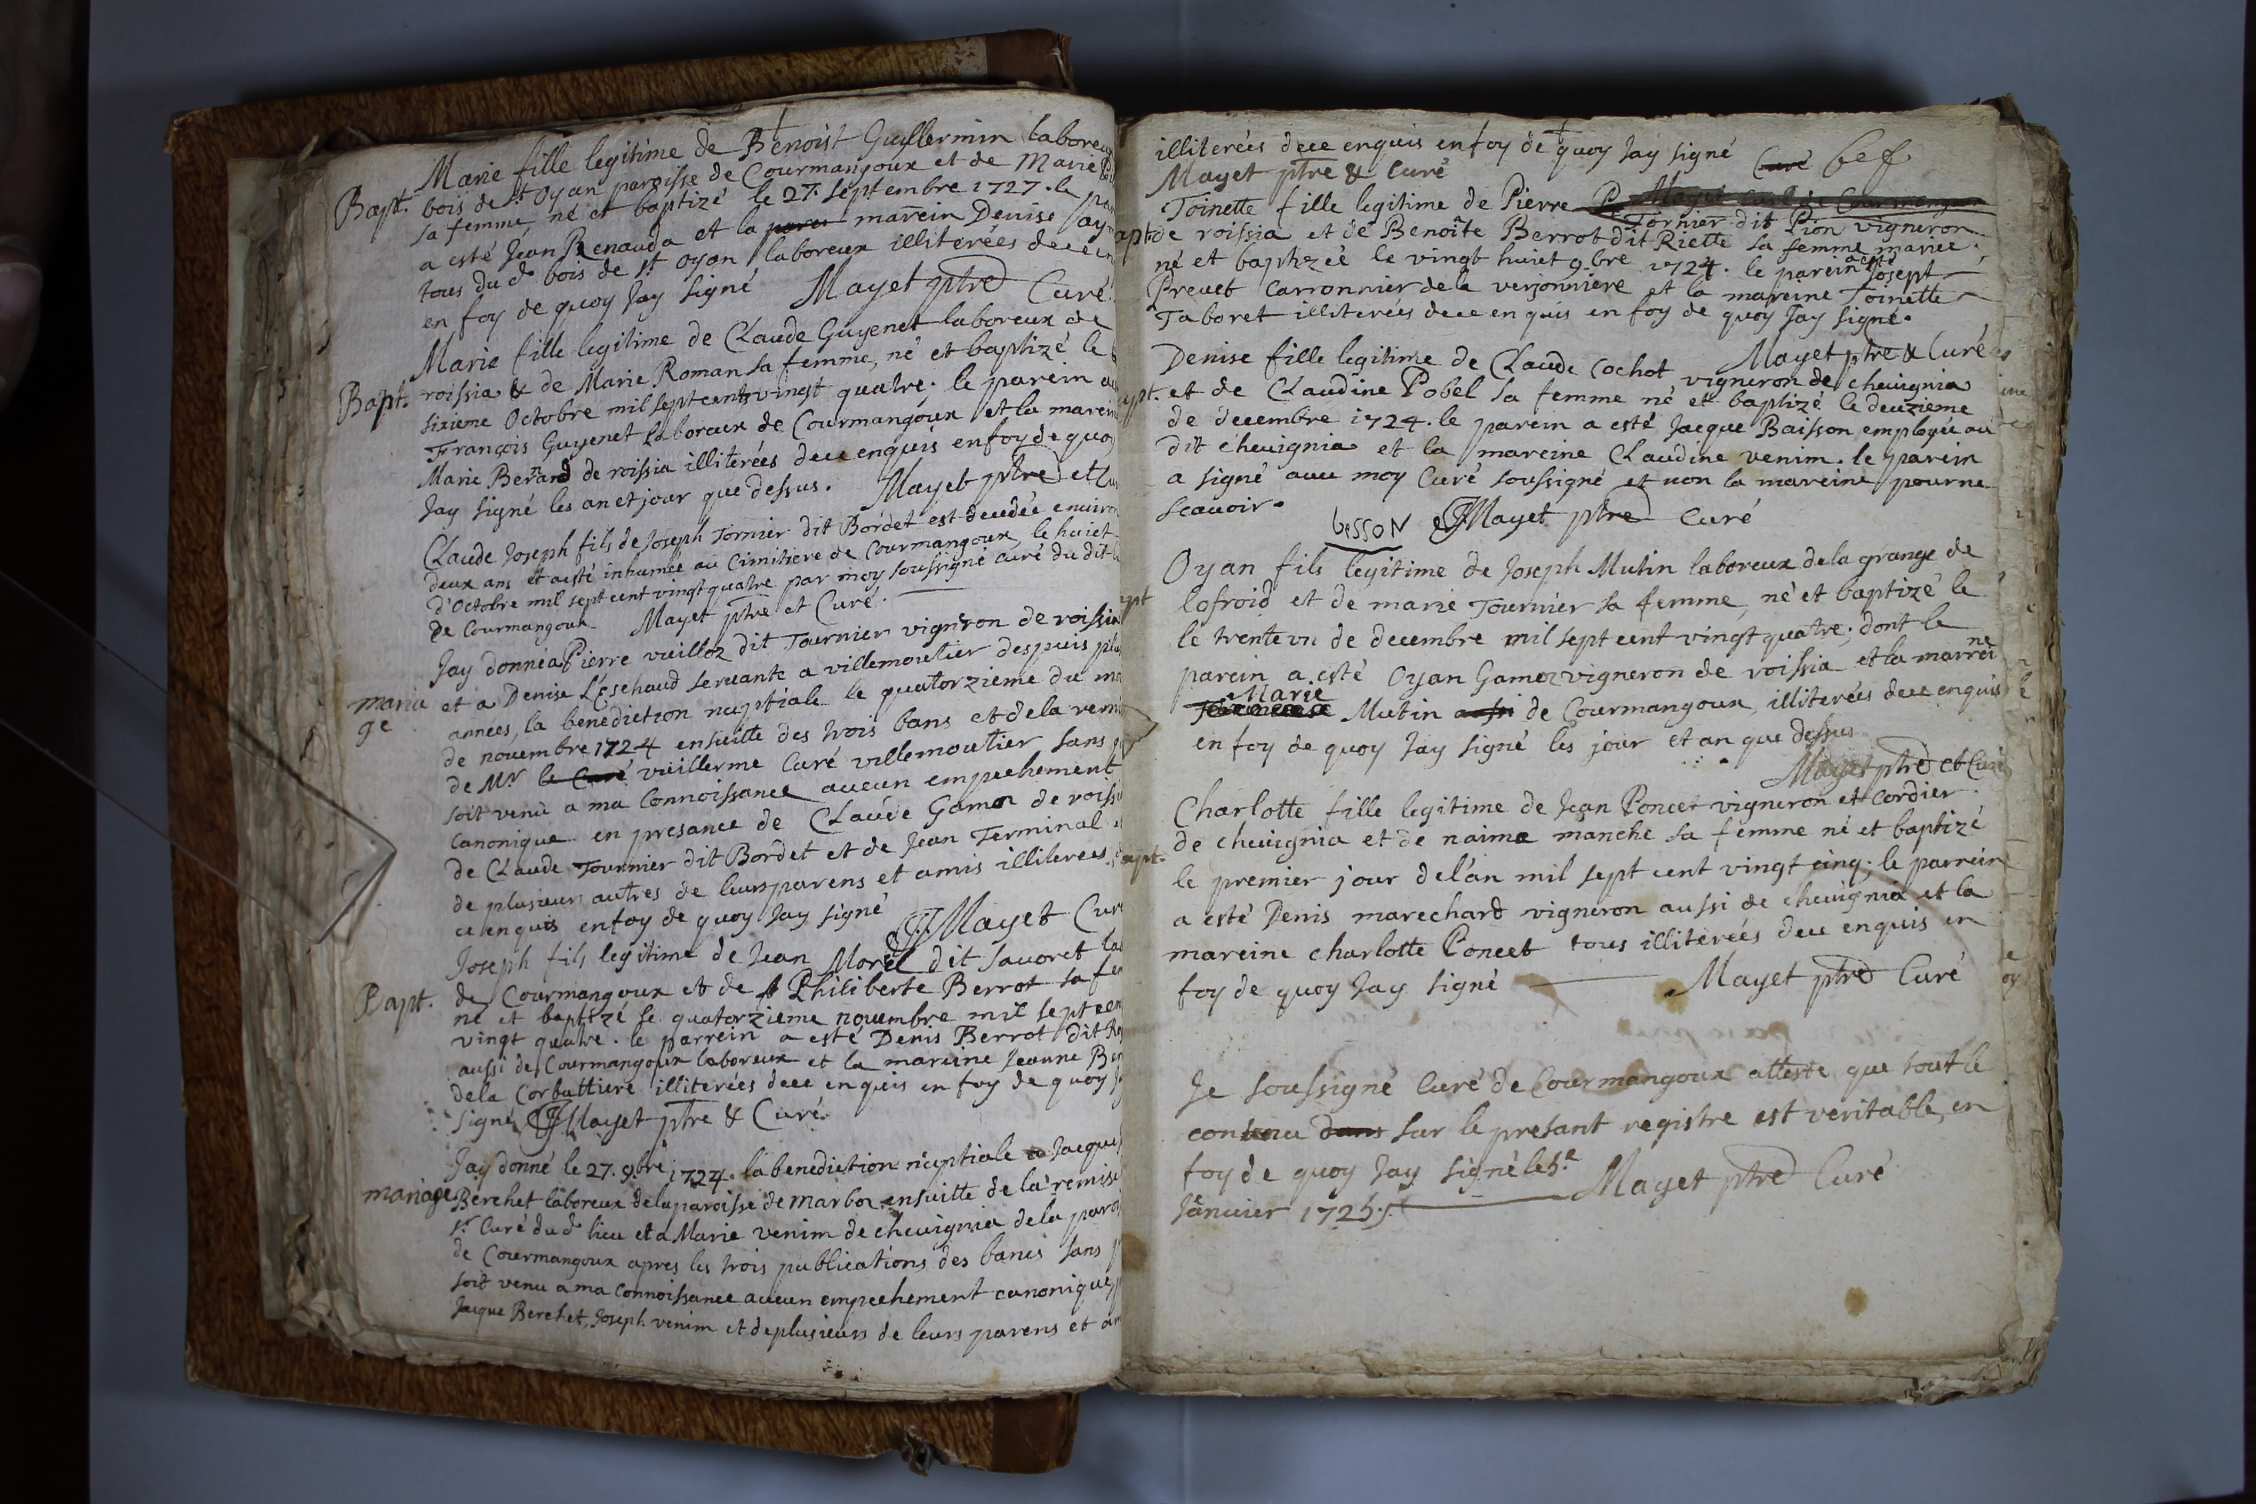 Marie fille legitime de Benoist Guyllermin laboreux
Bapt. bois de st Oyan paroisse de Courmangoux et de Marie
sa femme, né et baptizé le 27. septembre 1727. le
a esté Jean Renauda et la mareine Denise
tous du d. bois de st Oyan laboreux illiterées dece en
en foy de quoy Jay signé Mayet ptre Curé
Marie fille legitime de Claude Guyenet laboreux de
Bapt. roissia & de Marie Roman sa femme, né et baptizé le
sixieme Octobre mil sept cents vingt quatre; le parein
François Guyenet laboreux de Courmangoux et la marein
Marie Berand de roissia illiterées dece enquis en foy de quoy
Jay signé les an et jour que dessus. Mayet ptre et
Claude Joseph fils de Joseph Tornier dit Bordet est decedée environ
deux ans et aesté inhumée au Cimitiere de Courmangoux, le huict
d'Octobre mil sept cent vingt quatre par moy soussigné curé du dit
de Courmangoux Mayet ptre et Curé.
Jay donné a Pierre vuilloz dit Tournier vigneron de roissia
maria et a Denise L'Eschaud servante a villemoutier despuis
ge années, la benediction nuptiale le quatorzieme du
de novembre 1724 ensuitte des trois bans et de la
de Mr. le Curé vuillerme Curé villemoutier sans
soit venu a ma connoissance aucun empechement
canonique en presance de Claude Gamoz de
de Claude Tournier dit Bordet et de Jean Terminal
de plusieurs autres de leurs parens et amis illiterees
ce enquis en foy de quoy Jay signé JJMayet Curé
Joseph fils legitime de Jean Morel dit Savoret
Bapt. de Courmangoux et de Philiberte Berrot sa
né et baptizé le quatorzieme novembre mil sept cent
vingt quatre. le parrein a esté Denis Berrot dit
aussi de Courmangoux laboreux et la mareine Jeanne
dela Corbattiere illiterées dece enquis en foy de quoy
signé JJMayet ptre & Curé.
Jay donné le 27. 9.bre 1724. la benediction nuptiale a Jacque
mariage Berchet laboreux dela paroisse de marboz ensuitte de la remise
sr. Curé du d. lieu et a Marie venim de chevignia dela
de Courmangoux apres les trois publications des bancs sans
soit venu a ma connoissance aucun empechement canonique
Jacque Berchet, Joseph venim et deplusieurs de leurs parens et
illiterées dece enquis en foy de quoy Jay signé
Mayet ptre & Curé
Toinette fille legitime de Pierre
Tornier dit Pion vigneron
de roissia et de Benoîte Berrot dit Riette sa femme mariée.
né et baptizéé le vingt huict 9.bre 1724. le parein a esté Josept
Prevet Carronnier dela verjonniere et la mareine Toinette
Taboret illiterées dece en quis en foy de quoy Jay signé.
Mayet ptre & Curé
Denise fille legitime de Claude Cochot vigneron de chevignia
et de Claudine Pobel sa femme né et baptizé le deuzieme
de decembre 1724. le parein a esté Jacque Baisson employée au
dit chevignia et la mareine Claudine venim. le parein
a signé avec moy Curé soussigné et non la mareine pour ne
scavoir.
besson JJMayet ptre Curé
Oyan fils legitime de Joseph Mutin laboreux dela grange de
lofroid et de marie Tournier sa femme, né et baptizé le
le trente vn de decembre mil sept cent vingt quatre; dont le
parein a esté Oyan Gamoz vigneron de roissia et la marreine
Marie Mutin aussi de Courmangoux, illiterées dece enquis
en foy de quoy Jay signé les jour et an que dessus
Mayet ptre et Curé
Charlotte fille legitime de Jean Poncet vigneron et Cordier
de chevignia et de naime manche sa femme né et baptizé
le premier jour de l'an mil sept cent vingt cinq; le parrein
a esté Denis marechard vigneron aussi de chevignia et la
mareine charlotte Poncet tous illiterées dece enquis en
foy de quoy Jay signé Mayet ptre Curé
Je soussigné Curé de Courmangoux atteste que tout le
contenu dans sur le presant registre est veritable, en
foy de quoy Jay signé le 5e
Janvier 1725. Mayet ptre Curé